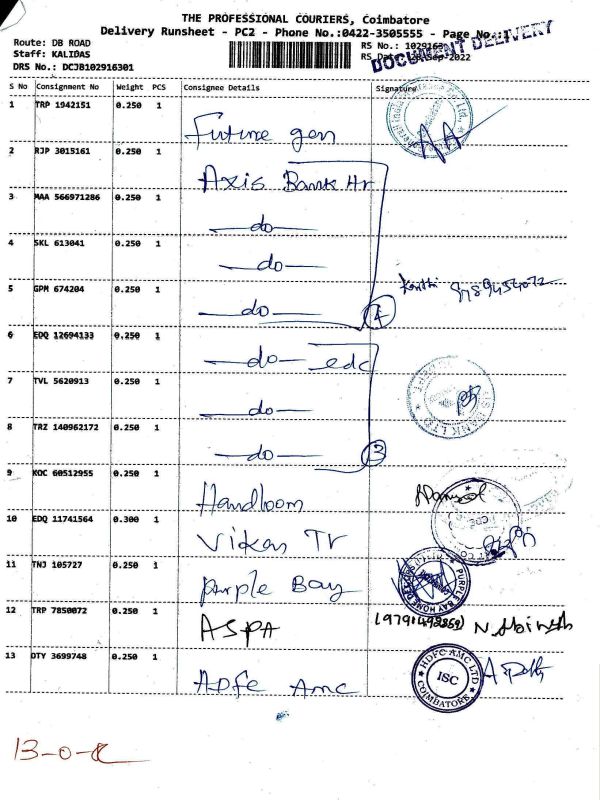 THE PROFESSIONAL COURIERS, Coimbatore
Delivery Runsheet - PC2 - Phone No.:0422-3505555 - Page No.:1
DOCUMENT DELIVERY
Route: DB ROAD
Staff: KALIDAS
DRS No.: DCJB102916301
RS No.: 1029163
RS Date: Sep-2022
S No Consignment No Weight PCS Consignee Details Signature
1 TRP 1942151 0.250 1 Future gen
2 RJP 3015161 0.250 1 Axis Bank Hr
3 MAA 566971286 0.250 1 —do—
4 SKL 613041 0.250 1 —do—
5 GPM 674204 0.250 1 —do— 4
6 EDQ 12694133 0.250 1 —do— edc
7 TVL 5620913 0.250 1 —do—
8 TRZ 140962172 0.250 1 —do— 3
9 KOC 60512955 0.250 1 Handloom
10 EDQ 11741564 0.300 1 Vikas Tr
11 TNJ 105727 0.250 1 Purple Bay
PURPLE BAY HOME
12 TRP 7850072 0.250 1 ASPA
13 OTY 3699748 0.250 1 HDFC AMC
HDFC AMC LTD
ISC
COIMBATORE